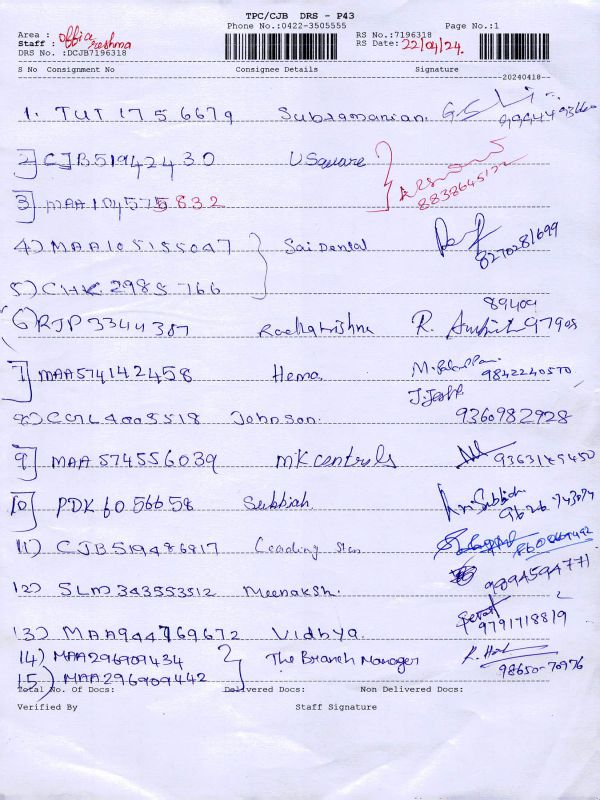 TPC/CJB DRS - P43
Phone No.:0422-3505555 Page No.:1
Area : office
Staff : reshma
DRS No. :DCJB7196318
RS No.:7196318
RS Date: 22/04/24.
S No Consignment No Consignee Details Signature
20240418
1. TUT 175 6679 Subramanian.
2) CJB519424 30 USquare
3) MAA104575832 8838645122
4) MAA105155047 Sai Dental 8270281699
5) CHK 2985 766
6) RJP 3344387 Radhakrishna R.
7) MAA574142458 Hema. 9842240570
8) Johnson. 9360982928
9) MAA 574556039 MK controls 9363149450
10) PDK 6056658 Subbiah.
11) CJB519486917 Leading star
12) SLM343553512 Meenakshi. 9894594771
13) MAA944769672 Vidhya. 9791718819
14) MAA296909434 The Branch Manager
15) MAA296909442 98650-70976
Total No. Of Docs: Delivered Docs: Non Delivered Docs:
Verified By Staff Signature